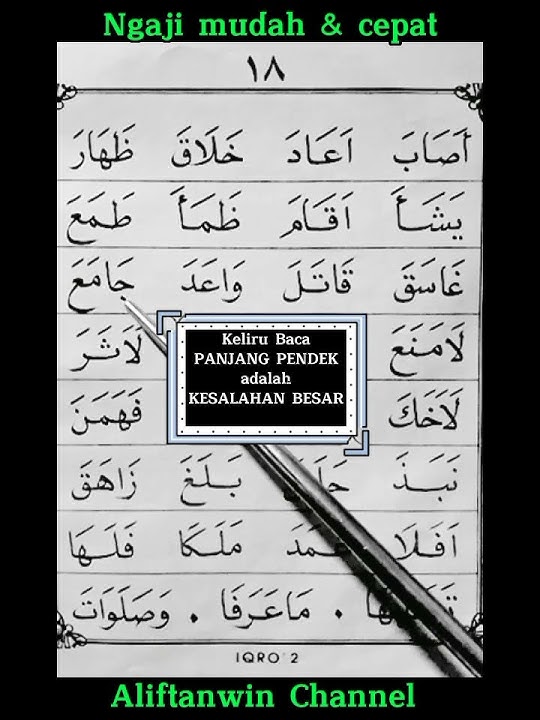 Ngaji mudah & cepat
١٨
أَصَابَ اَعَادَ خَلَاقَ ظَهَارَ
يَشَأَ اَقَامَ ظَمَأَ طَمَعَ
غَاسَقَ قَاتَلَ وَاعَدَ جَامَعَ
لَامَنَعَ لَاثَرَ
لَاَخَكَ فَهَمَنَ
Keliru Baca
PANJANG PENDEK
adalah
KESALAHAN BESAR
نَبَذَ بَلَغَ زَاهَقَ
اَفَلَا مَلَكَا فَلَهَا
. مَاعَرَفَا . وَصَلَوَاتَ
IQRO' 2
Aliftanwin Channel